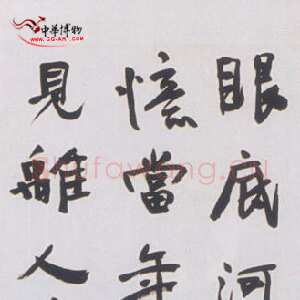 中華博物
www.ZG-Art.com
眼底河
憶當年
見離人
shufawang.cn